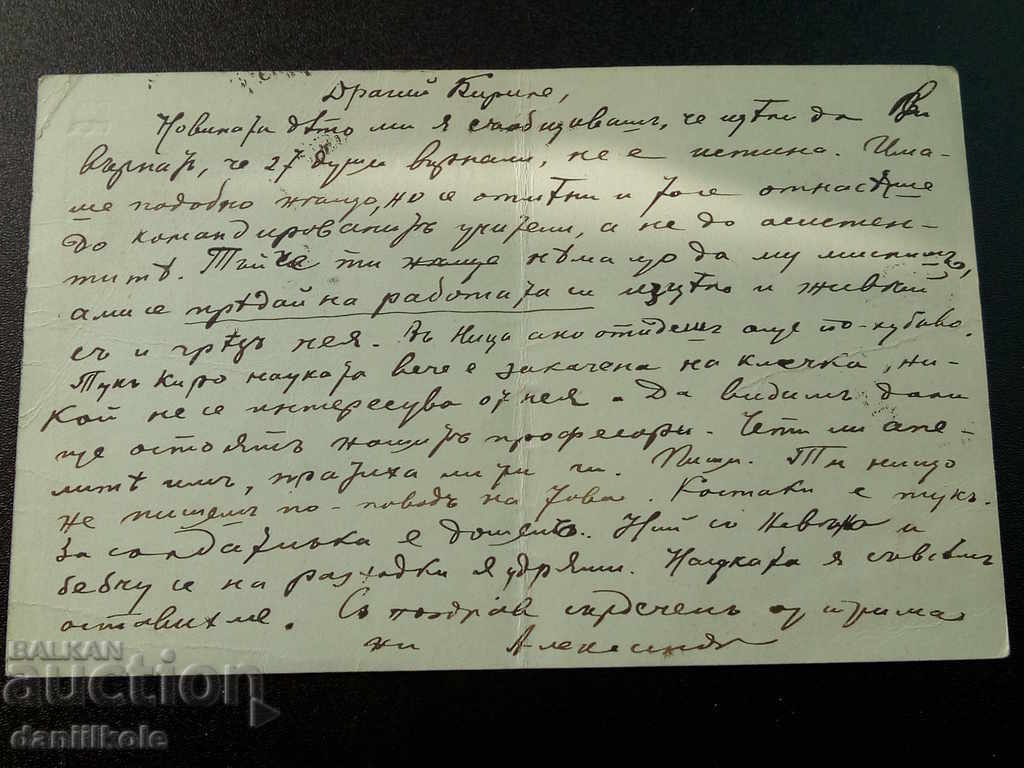 Драгий Кириле,
Новината дѣто ми я съобщавашъ, че щѣли да Ви
върнатъ, че 27 души върнали, не е истина. Има-
ше подобно нѣщо, но се отмѣни и това отнасяше
до командированитѣ учители, а не до асистен-
титѣ. Тъй че ти нѣма що да му мислишъ,
ами се прѣдай на работата си изцѣло и живѣй
съ и чрѣзъ нея. Въ Ница ако отидешъ още по-хубаво.
Тукъ Киро науката вече е закачена на клечка, ни-
кой не се интересува отъ нея. Да видимъ дали
ще остоятъ нашитѣ професори. Чете ли апе-
литѣ имъ, пратиха ли ти ги. Пиши. Ти нищо
не пишешъ по-поводъ на това. Костаки е тукъ.
За солдатлъка е дошелъ. Ний со и
бебчу се на разходки я удряме. Науката я съвсѣмъ
оставихме. Съ поздрав сърдеченъ отъ
ни Александъ
BALKAN
auction
daniilkole